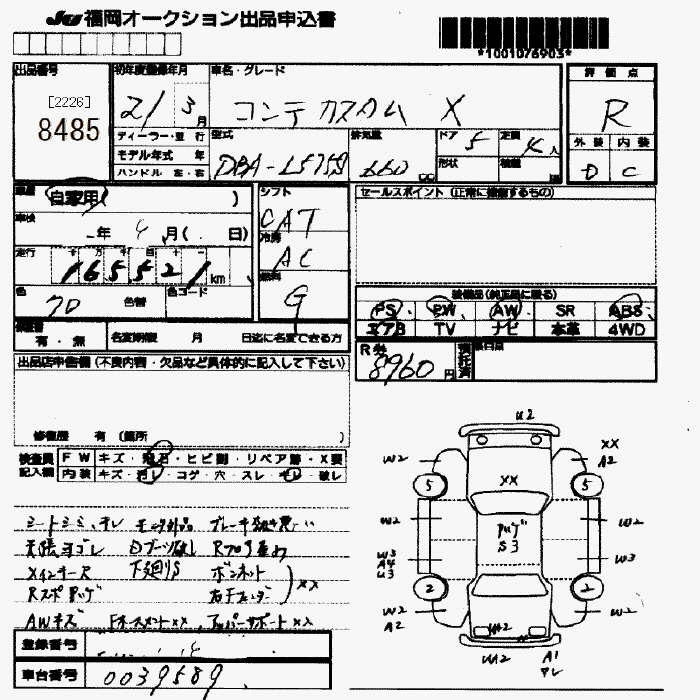 JU福岡オークション出品申込書
*1001076903*
出品番号
[2226]
8485
初年度登録年月
21/3月
車名・グレード
コンテ カスタム X
評価点
R
外装 内装
D C
ディーラー・並行
モデル年式 年
ハンドル 左・右
型式
DBA-L575S
排気量
660 cc
ドア
5
形状
定員
4人
積載
車歴
自家用( )
車検
年 4月( 日)
走行
十 万 千 百 十 一
165521 km
色
プロ
色替
色コード
シフト
CAT
冷房
AC
燃料
G
セールスポイント (正常に稼働するもの)
装備品(純正品に限る)
PS PW AW SR ABS
エアB TV ナビ 本革 4WD
有・無
名変期限 月 日迄に名変できる方
R券
8960円
出品店申告欄 (不良内容・欠品など具体的に記入して下さい)
修復歴 有 〔箇所 〕
検査員
記入欄
FW キズ・飛石・ヒビ割・リペア跡・X要
内装 キズ・汚レ・コゲ・穴・スレ・キレ・破レ
天張ヨゴレ Dブーツ破レ
Xインナー天 下廻りS ボンネット
右Fフェンダー
XX
AWキズ
登録番号
車台番号
0039589
U2
W2
XX
A2
5
5
XX
W2
W2
S3
W3
A4
U3
W3
2
2
W2
A2
W2
W2
W2
A1